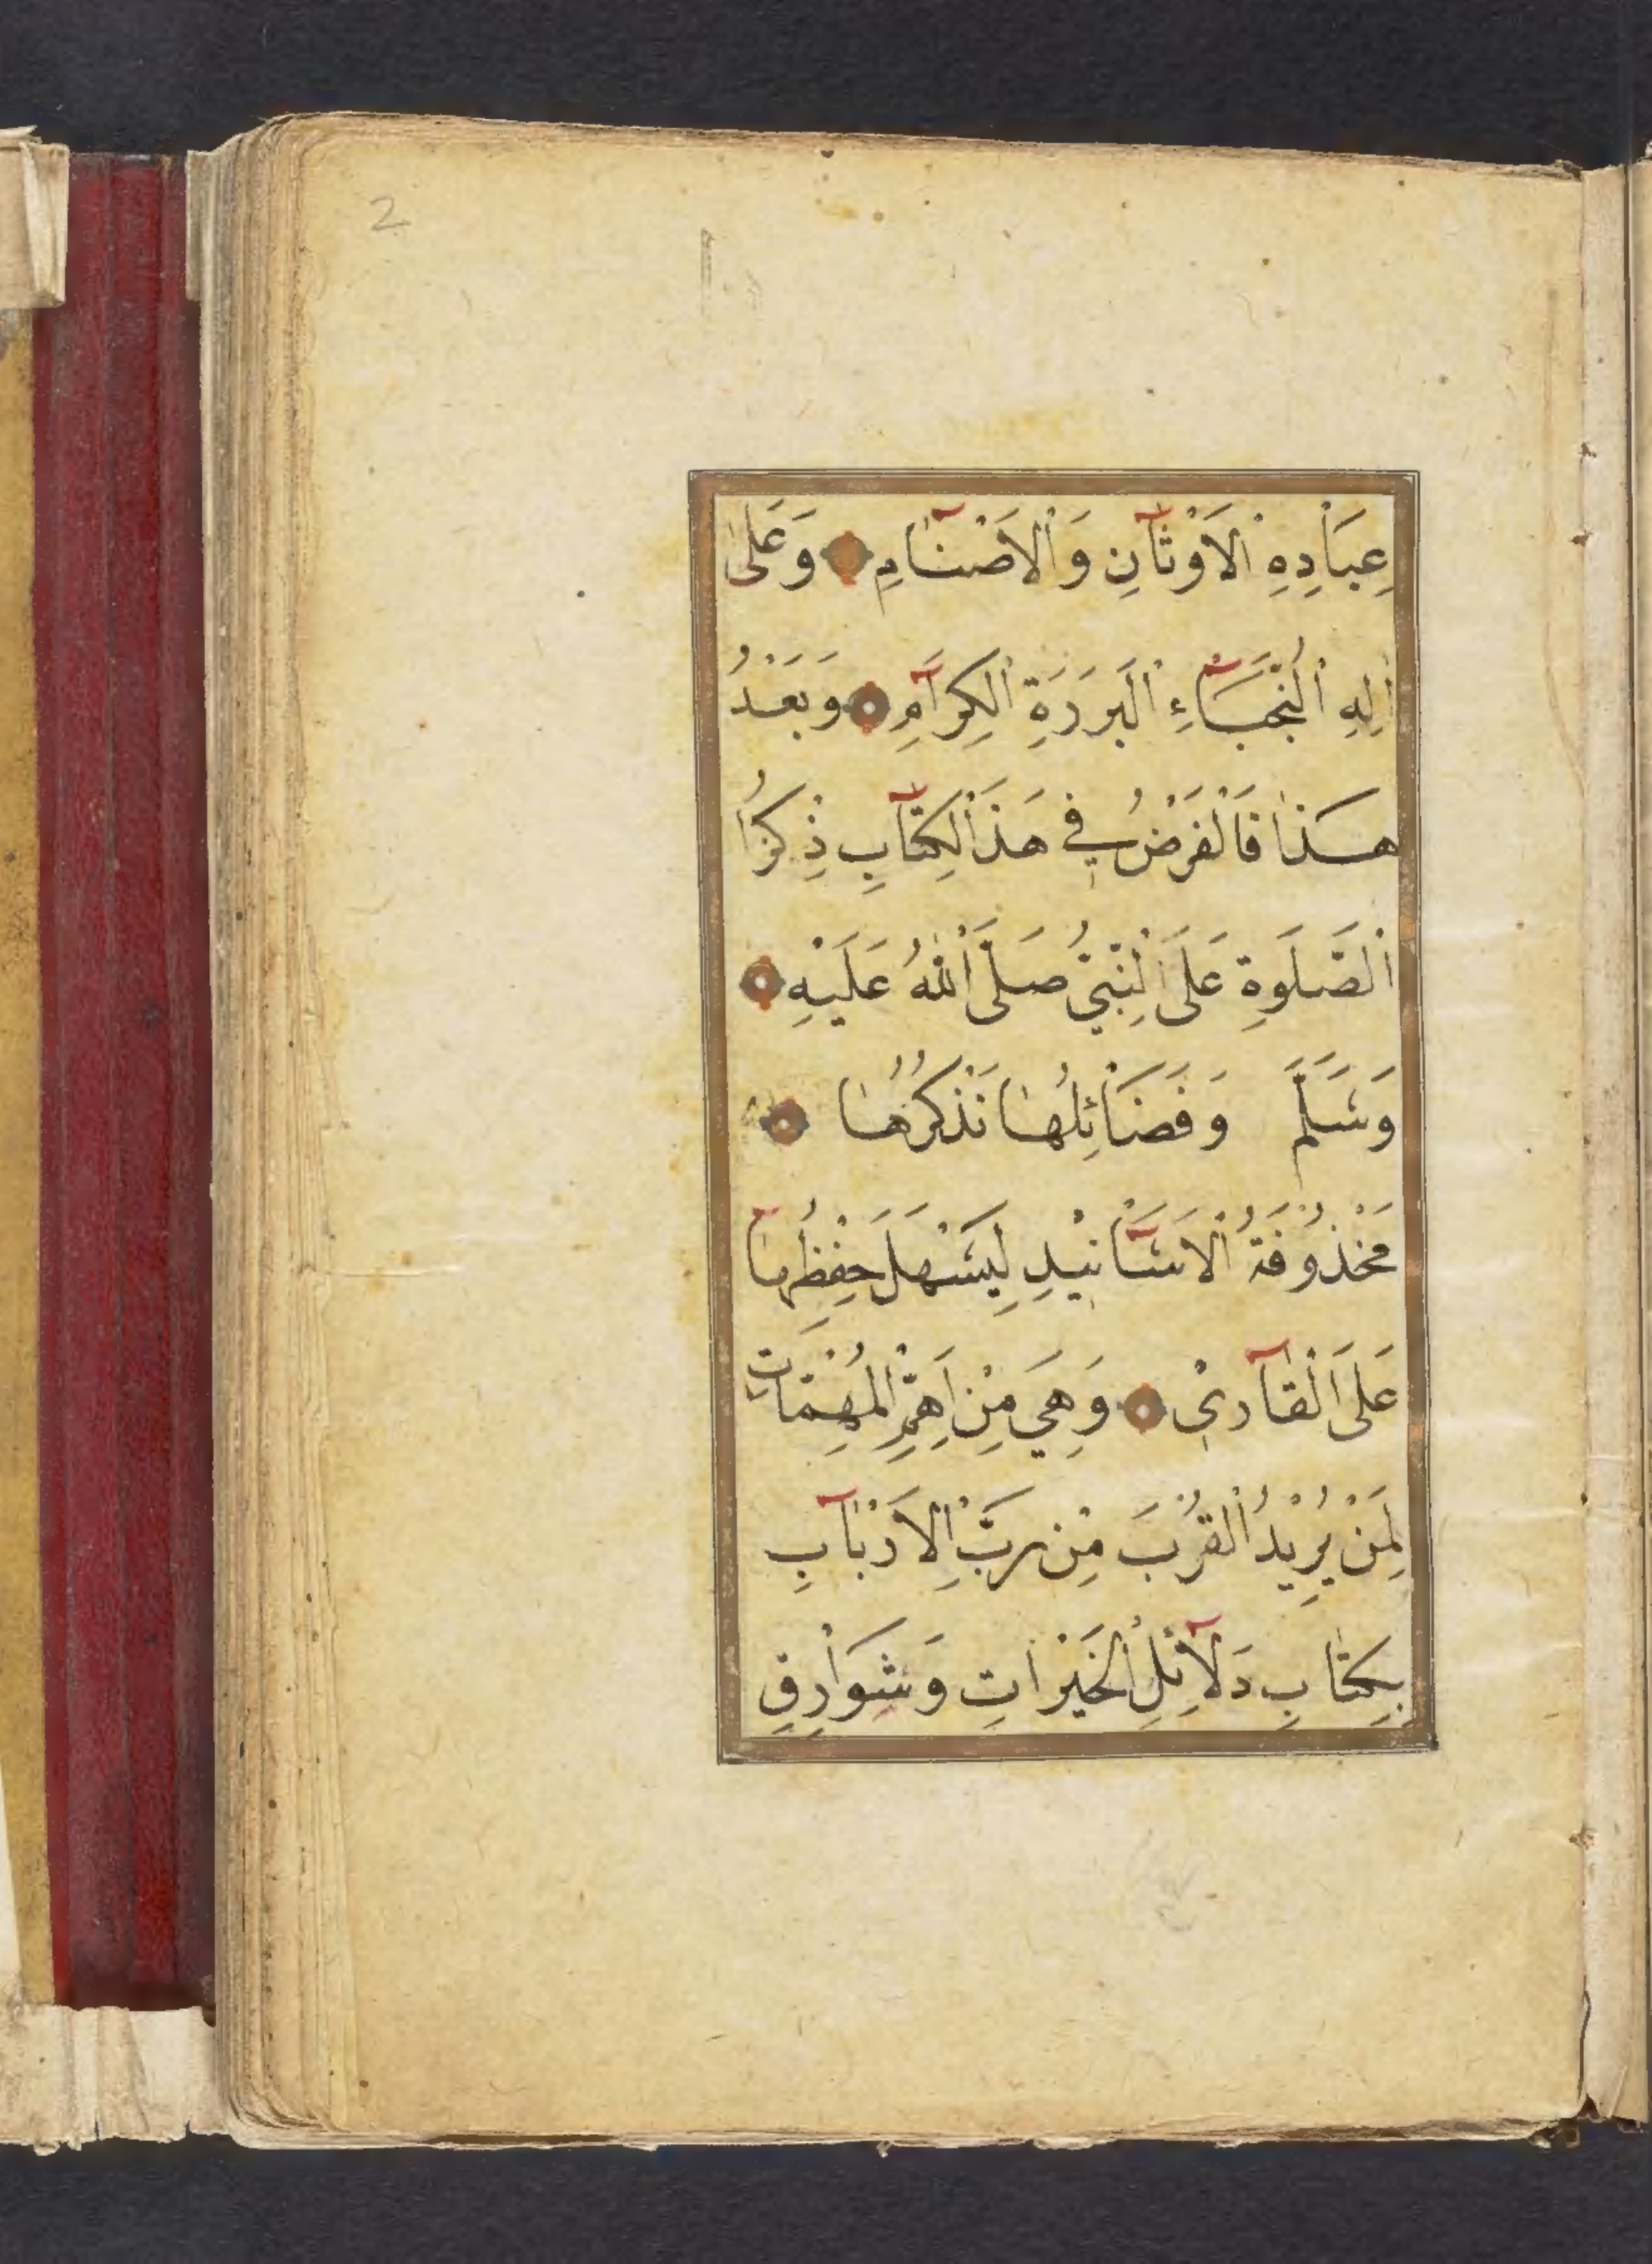 2
عِبَادِهِ الْاَوْثَانِ وَالْاَصْنَامِ وَعَلٰى
اٰلِهِ النُّجَبَاءِ الْبَرَرَةِ الْكِرَامِ وَبَعْدُ
هٰذَا فَالْفَرَضُ فِي هَذَا لْكِتَابِ ذِكْرُ
الصَّلَوةِ عَلَى النَّبِيِّ صَلَّى اللّٰهُ عَلَيْهِ
وَسَلَّمَ وَفَضَائِلُهَا نَذْكُرُهَا
مَخْذُوفَةُ الْاَسَانِيْدِ لِيَسْهَلَ حِفْظُهَا
عَلَى الْقَارِيْ وَهِيَ مِنْ اَهَمِّ الْمُهِمَّاتِ
لِمَنْ يُرِيْدُ الْقُرْبَ مِنْ رَبِّ الْاَرْبَابِ
بِكِتَابِ دَلَائِلِ الْخَيْرَاتِ وَشَوَارِقِ